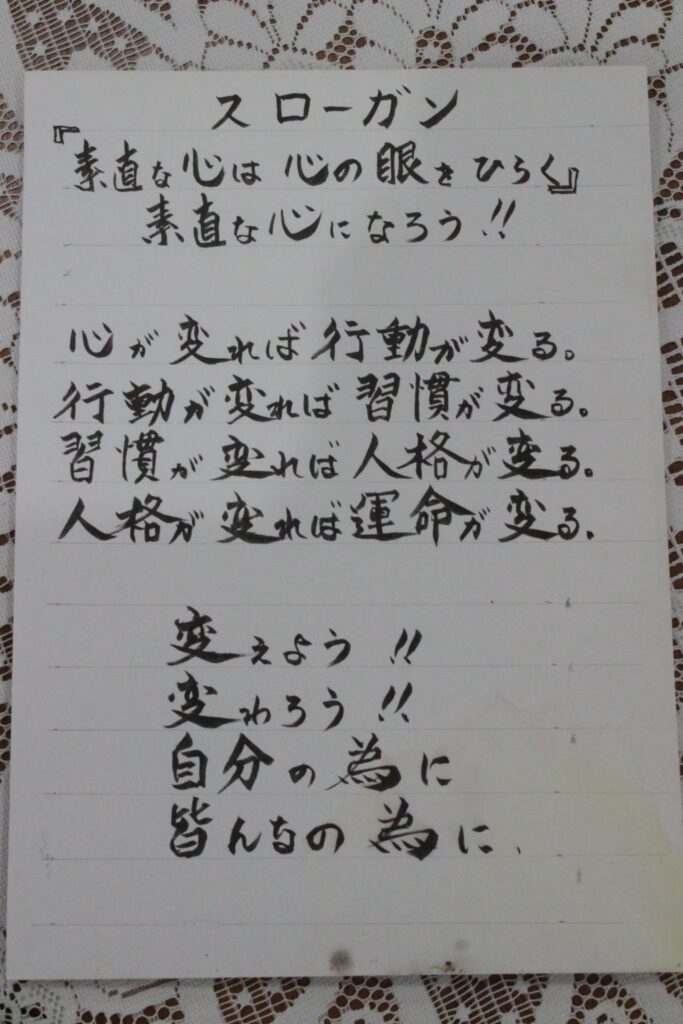 スローガン
『素直な心は 心の眼をひらく』
素直な心になろう!!
心が変れば行動が変る。
行動が変れば習慣が変る。
習慣が変れば人格が変る。
人格が変れば運命が変る.
変えよう!!
変わろう!!
自分の為に
皆んなの為に.